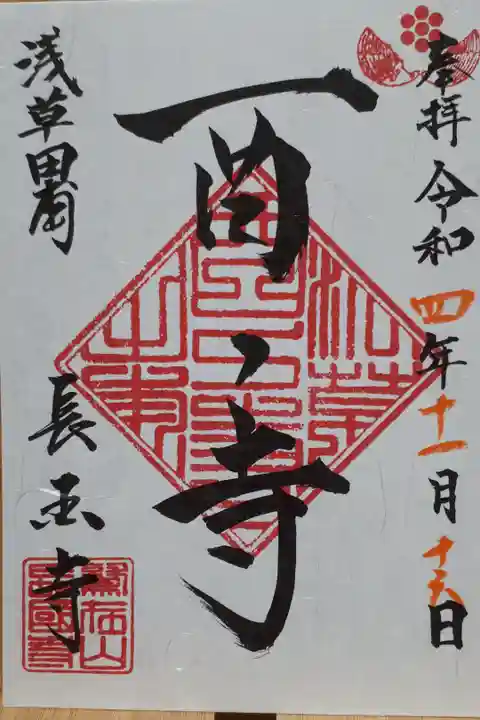 奉拝 令和四年十一月十六日
酉之寺
浅草田圃
長国寺
鷲在山
長國寺